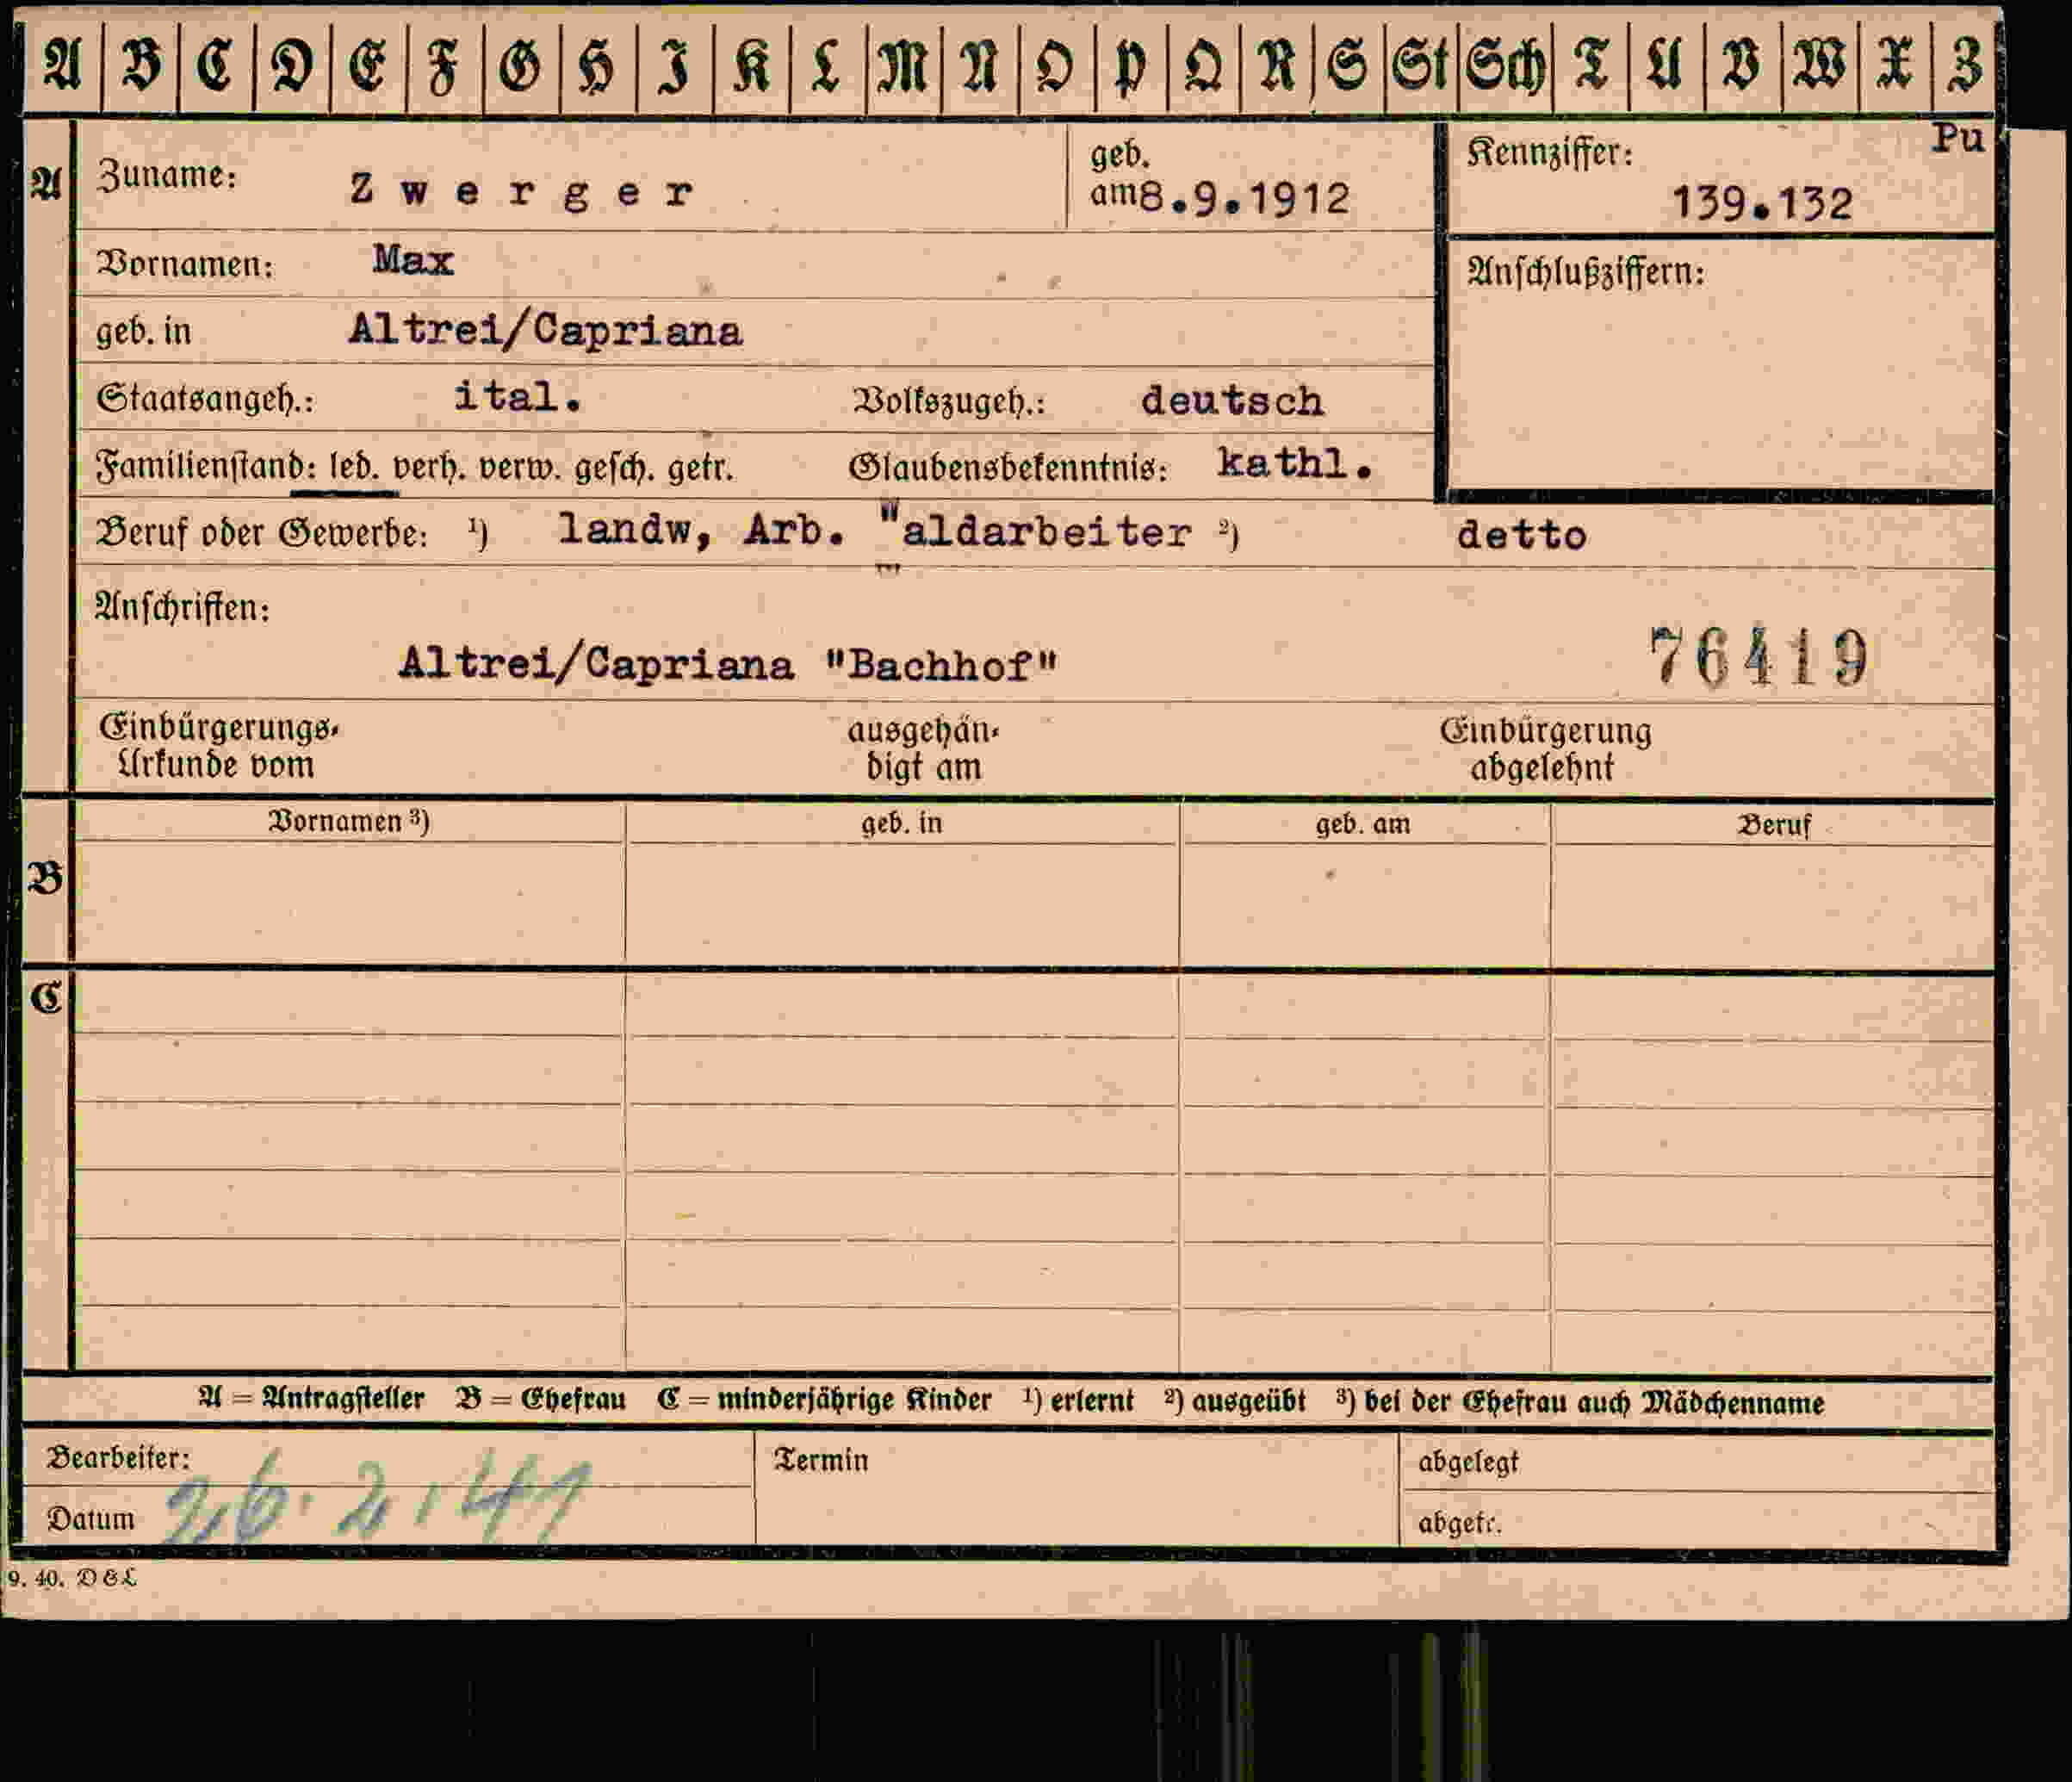 A B C D E F G H I K L M N O P Q R S St Sch T U V W X Z
Pu
A Zuname: Zwerger geb. am 8.9.1912 Kennziffer: 139.132
Vornamen: Max Anschlußziffern:
geb. in Altrei/Capriana
Staatsangeh.: ital. Volkszugeh.: deutsch
Familienstand: led. verh. verw. gesch. getr. Glaubensbekenntnis: kathl.
Beruf oder Gewerbe: ¹) landw, Arb. Waldarbeiter ²) detto
Anschriften:
Altrei/Capriana "Bachhof" 76419
Einbürgerungs- ausgehän- Einbürgerung
Urkunde vom digt am abgelehnt
Vornamen ³) geb. in geb. am Beruf
B
C
A = Antragsteller B = Ehefrau C = minderjährige Kinder ¹) erlernt ²) ausgeübt ³) bei der Ehefrau auch Mädchenname
Bearbeiter: Termin abgelegt
Datum 26.2.41 abgetr.
9. 40. D & L